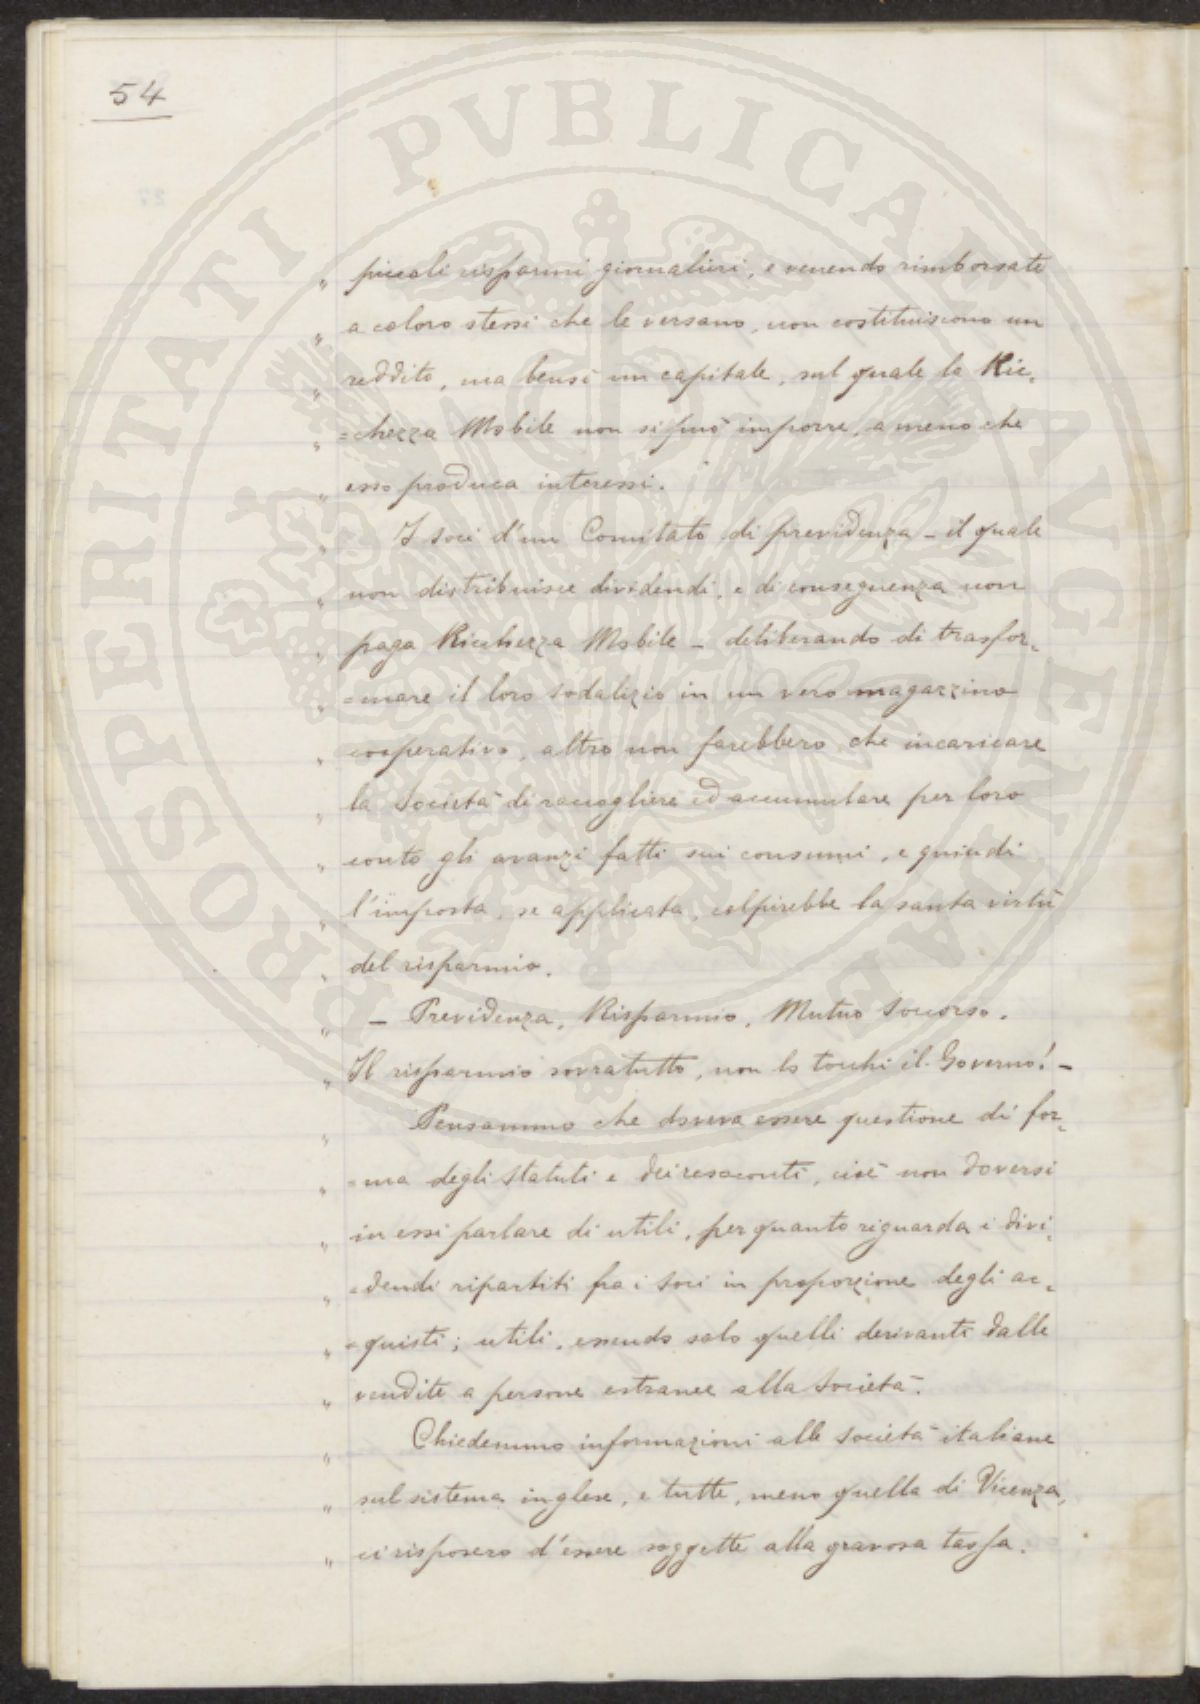 54
„ piccoli risparmi giornalieri, e venendo rimborsate
„ a coloro stessi che le versano, non costituiscono un
„ reddito, ma bensì un capitale, sul quale la Ric„
„ =chezza Mobile non si può imporre, a meno che
„ esso produca interessi.
„ I soci d'un Comitato di previdenza – il quale
„ non distribuisce dividendi, e di conseguenza non
„ paga Ricchezza Mobile – deliberando di trasfor„
„ =mare il loro sodalizio in un vero magazzino
„ cooperativo, altro non farebbero che incaricare
„ la Società di raccogliere ed accumulare per loro
„ conto gli avanzi fatti sui consumi, e quindi
„ l'imposta, se applicata, colpirebbe la santa virtù
„ del risparmio.
„ – Previdenza, Risparmio, Mutuo Soccorso.
„ Il risparmio sovratutto, non lo tocchi il Governo! –
„ Pensammo che doveva essere questione di for„
„ =ma degli Statuti e dei resoconti, cioè non doversi
„ in essi parlare di utili, per quanto riguarda i divi„
„ =dendi ripartiti fra i Soci in proporzione degli ac„
„ =quisti; utili, essendo solo quelli derivanti dalle
„ vendite a persone estranee alla Società.
„ Chiedemmo informazioni alle Società italiane
„ sul sistema inglese, e tutte, meno quella di Vicenza,
„ ci risposero d'essere soggette alla gravosa tassa.
PROSPERITATI PVBLICAE AVGENDAE